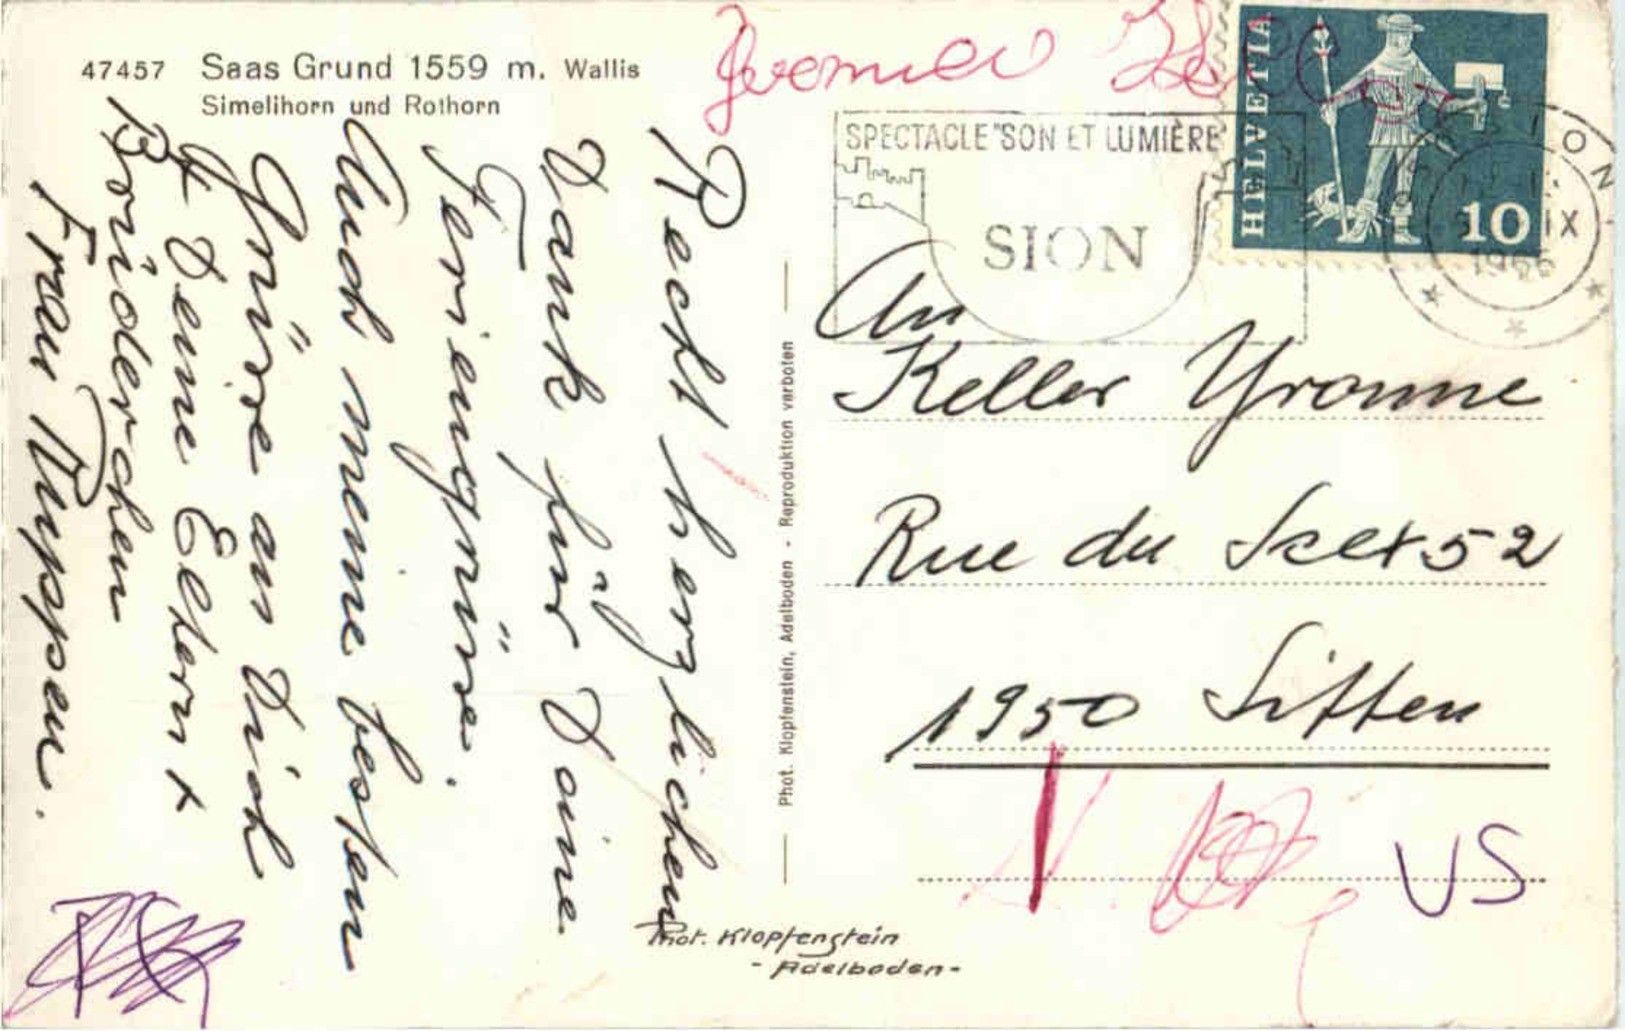 47457 Saas Grund 1559 m. Wallis
Simelihorn und Rothorn
Recht herzlichen
Dank für Deine
Feriengrüsse.
Auch meine besten
Grüsse an Dich
+ Deine Eltern +
Brüderchen
Frau Ruppen.
Phot. Klopfenstein, Adelboden - Reproduktion verboten
Phot. Klopfenstein
- Adelboden -
SPECTACLE "SON ET LUMIÈRE"
SION
HELVETIA
10
SION
IX
1966
An
Keller Yvonne
Rue du Scex 52
1950 Sitten
VS